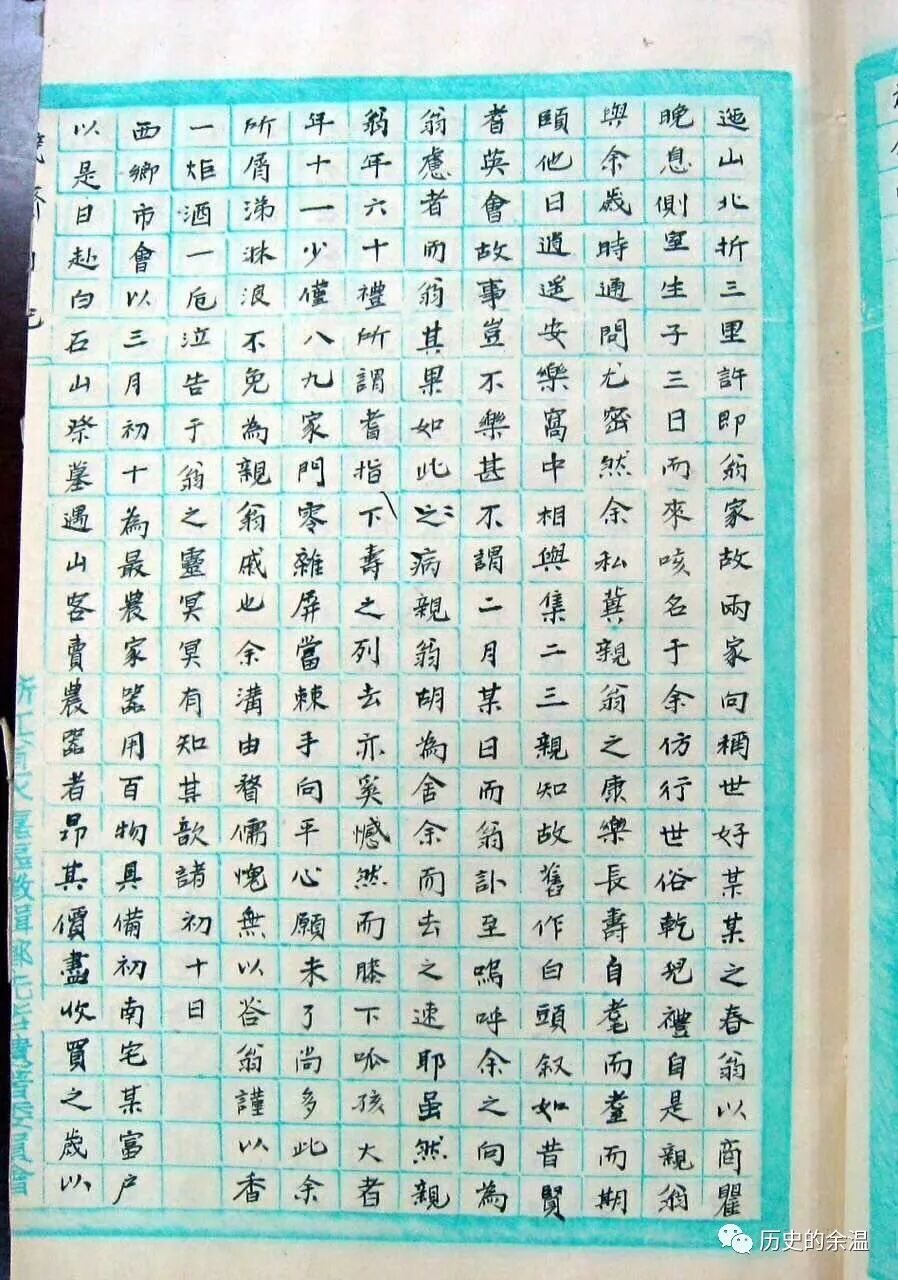 迤山北折三里許即翁家故兩家向稱世好某某之春翁以商瞿
晚息側室生子三日而來咳名于余仿行世俗乾兒禮自是親翁
與余歲時通問尤密然余私冀親翁之康樂長壽自耄而耋而期
頤他日逍遥安樂窩中相與集二三親知故舊作白頭叙如昔賢
耆英會故事豈不樂甚不謂二月某日而翁訃至嗚呼余之向為
翁慮者而翁其果如此之病親翁胡為舍余而去之速耶虽然親
翁年六十禮所謂耆指下壽之列去亦奚憾然而膝下呱孩大者
年十一少僅八九家門零雜屏當棘手向平心願未了尚多此余
所屑涕淋浪不免為親翁戚也余溝由瞀儒愧無以答翁謹以香
一炬酒一卮泣告于翁之靈冥冥有知其歆諸初十日
西鄉市會以三月初十為最農家器用百物具備初南宅某富户
以是日赴白石山祭墓遇山客賣農器者昂其價盡收買之歲以
浙江省永嘉區徵輯鄉先哲遺著委員會
历史的余温